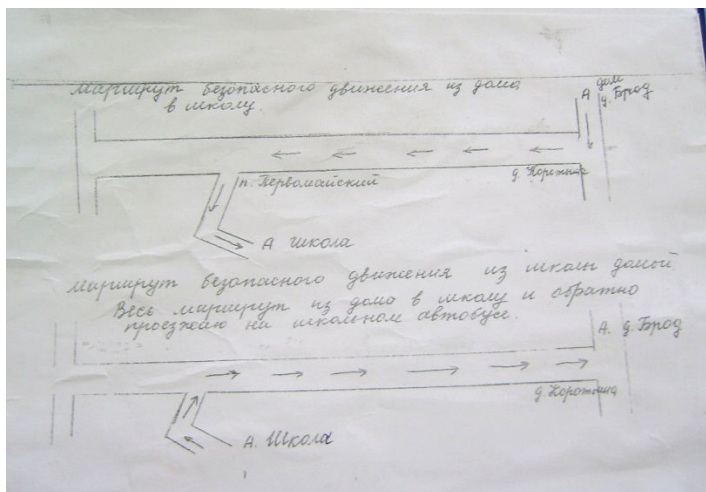 Маршрут безопасного движения из дома
в школу.
А дом
д. Брод
п. Первомайский
д. Коротыша
А школа
Маршрут безопасного движения из школы домой
Весь маршрут из дома в школу и обратно
проезжаю на школьном автобусе.
А. д. Брод
А. Школа